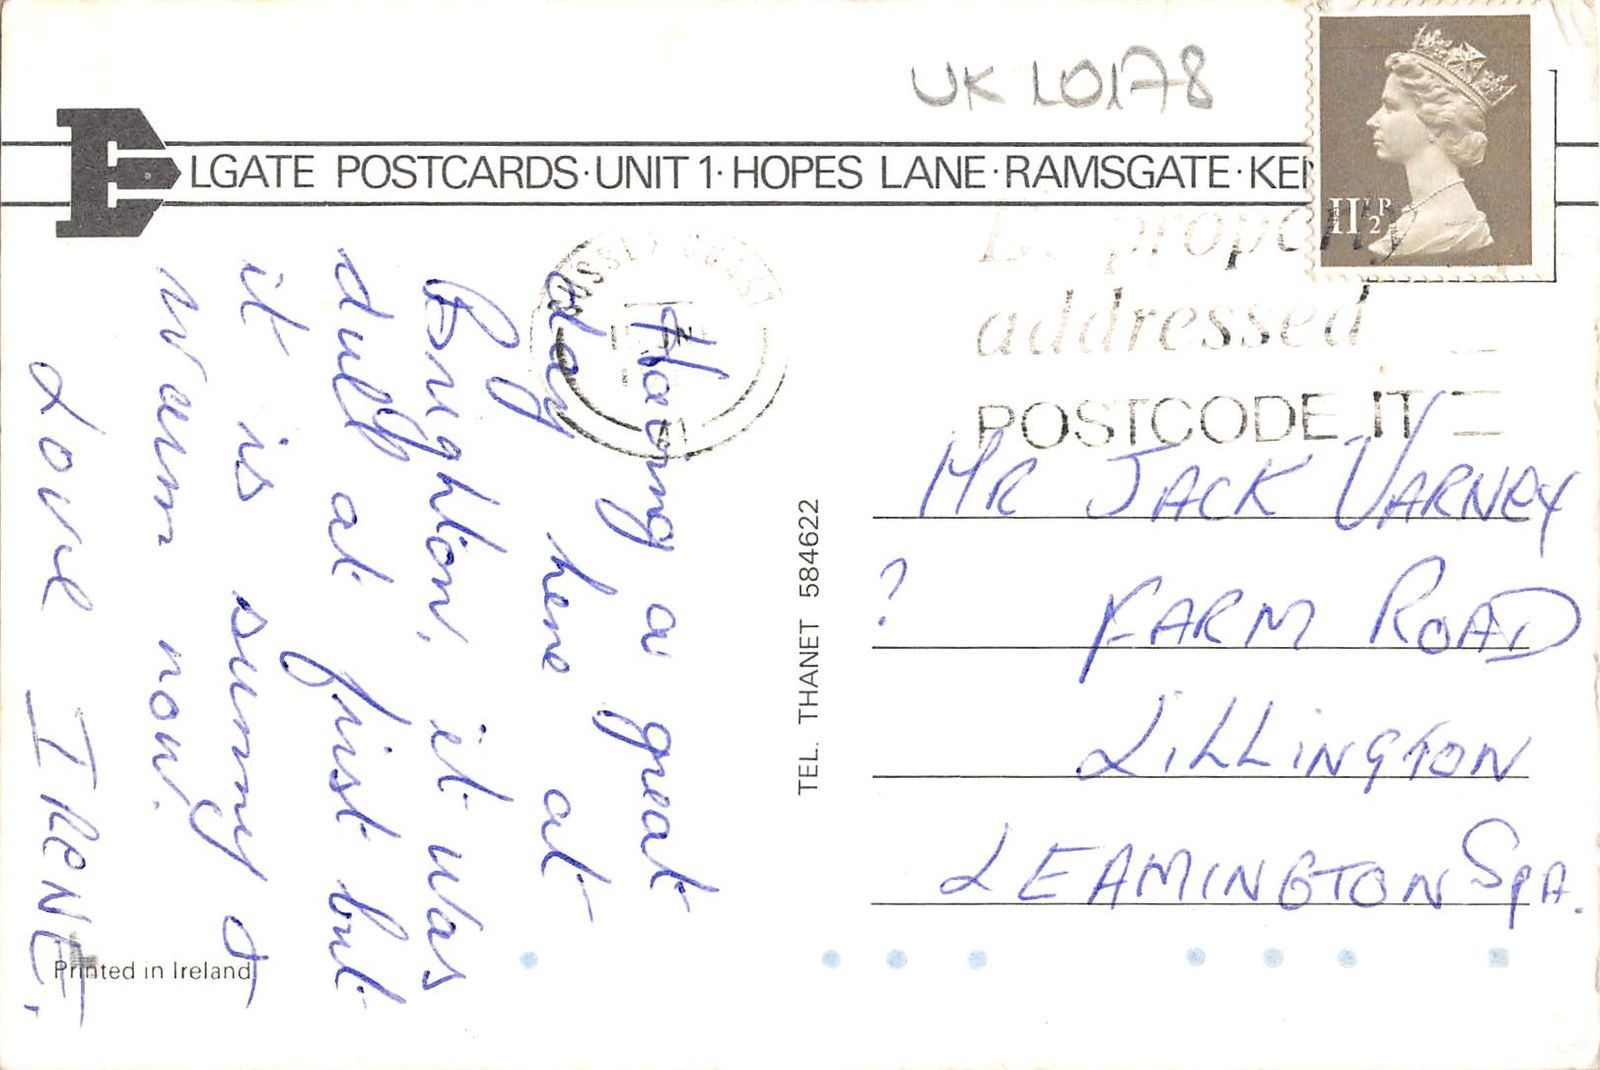 UK L0178
ELGATE POSTCARDS·UNIT 1·HOPES LANE·RAMSGATE·KEN
11½P
properly
addressed
POSTCODE IT
SUSSEX COAST
Having a great
day here at
Brighton, it was
dull at first but
it is sunny &
warm now.
Love IRENE.
TEL. THANET 584622
MR JACK VARNEY
? FARM ROAD
LILLINGTON
LEAMINGTON SPA.
Printed in Ireland